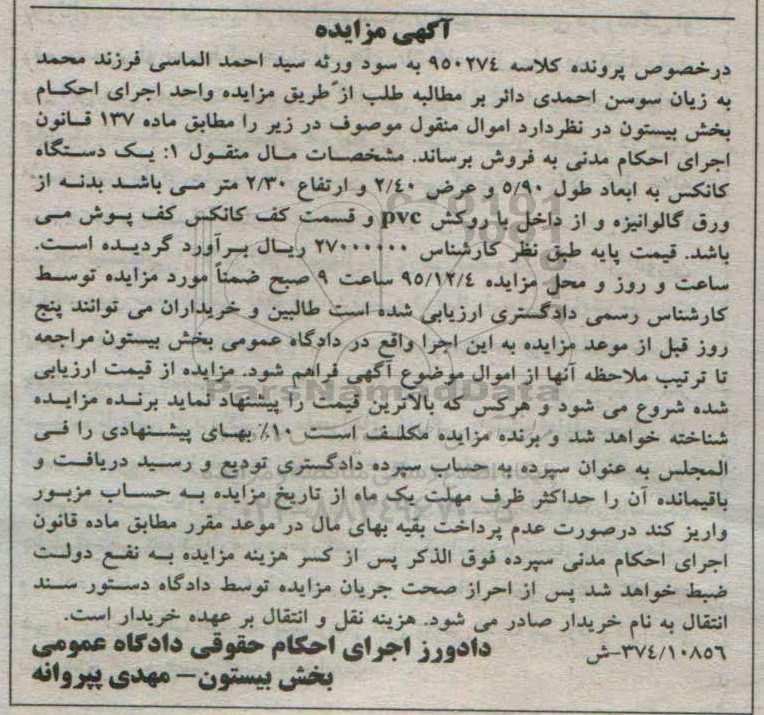 آگهی مزایده
درخصوص پرونده کلاسه ۹۵۰۲۷٤ به سود ورثه سید احمد الماسی فرزند محمد
به زیان سوسن احمدی دائر بر مطالبه طلب از طریق مزایده واحد اجرای احکام
بخش بیستون در نظردارد اموال منقول موصوف در زیر را مطابق ماده ۱۳۷ قانون
اجرای احکام مدنی به فروش برساند. مشخصات مال منقول ۱: یک دستگاه
کانکس به ابعاد طول ۵/۹۰ و عرض ۲/٤۰ و ارتفاع ۲/۳۰ متر می باشد بدنه از
ورق گالوانیزه و از داخل با روکش pvc و قسمت کف کانکس کف پوش می
باشد. قیمت پایه طبق نظر کارشناس ۲۷۰۰۰۰۰۰ ریال برآورد گردیده است.
ساعت و روز و محل مزایده ۹۵/۱۲/٤ ساعت ۹ صبح ضمناً مورد مزایده توسط
کارشناس رسمی دادگستری ارزیابی شده است طالبین و خریداران می توانند پنج
روز قبل از موعد مزایده به این اجرا واقع در دادگاه عمومی بخش بیستون مراجعه
تا ترتیب ملاحظه آنها از اموال موضوع آگهی فراهم شود. مزایده از قیمت ارزیابی
شده شروع می شود و هرکس که بالاترین قیمت را پیشنهاد نماید برنده مزایده
شناخته خواهد شد و برنده مزایده مکلف است ۱۰٪ بهای پیشنهادی را فی
المجلس به عنوان سپرده به حساب سپرده دادگستری تودیع و رسید دریافت و
باقیمانده آن را حداکثر ظرف مهلت یک ماه از تاریخ مزایده به حساب مزبور
واریز کند درصورت عدم پرداخت بقیه بهای مال در موعد مقرر مطابق ماده قانون
اجرای احکام مدنی سپرده فوق الذکر پس از کسر هزینه مزایده به نفع دولت
ضبط خواهد شد پس از احراز صحت جریان مزایده توسط دادگاه دستور سند
انتقال به نام خریدار صادر می شود. هزینه نقل و انتقال بر عهده خریدار است.
۳۷٤/۱۰۸۵٦-ش دادورز اجرای احکام حقوقی دادگاه عمومی
بخش بیستون- مهدی پیروانه
ParsNamadData